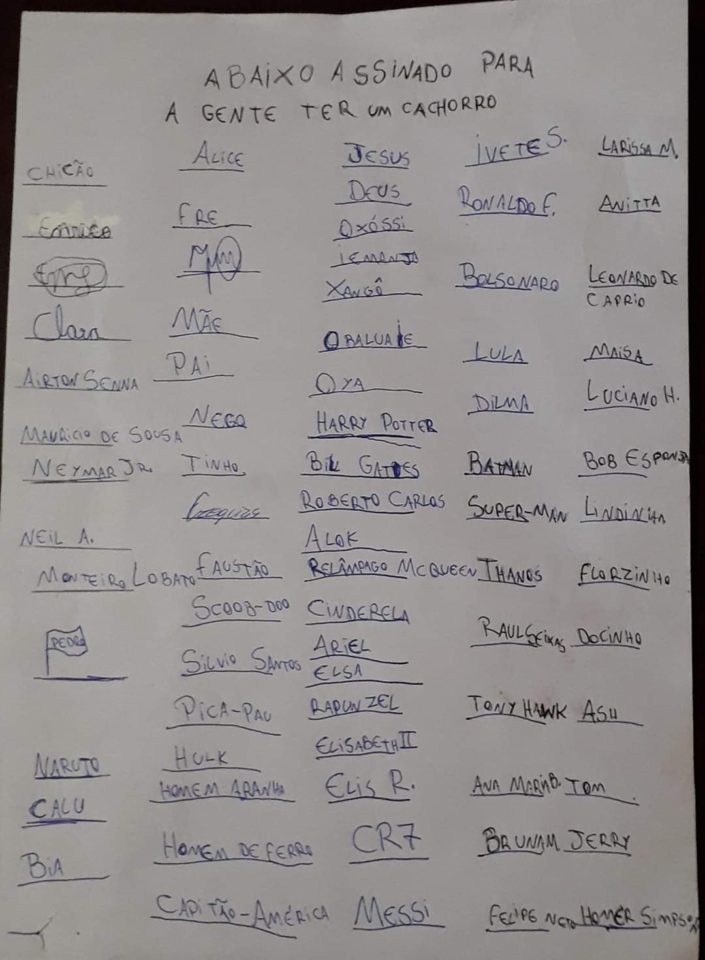 ABAIXO ASSINADO PARA
A GENTE TER UM CACHORRO
CHICÃO
Enrico
Clara
AIRTON SENNA
MAURICIO DE SOUSA
NEYMAR JR.
NEIL A.
MONTEIRO LOBATO
PEDRO
NARUTO
CALU
BIA
ALICE
FRE
MÃE
PAI
NEGO
TINHO
FAUSTÃO
SCOOB-DOO
SILVIO SANTOS
PICA-PAU
HULK
HOMEM ARANHA
HOMEM DE FERRO
CAPITÃO-AMÉRICA
JESUS
DEUS
OXÓSSI
IEMANJA
XANGÔ
OBALUAIE
OYA
HARRY POTTER
BILL GATES
ROBERTO CARLOS
ALOK
RELÂMPAGO MCQUEEN
CINDERELA
ARIEL
ELSA
RAPUNZEL
ELISABETH II
ELIS R.
CR7
MESSI
IVETE S.
RONALDO F.
BOLSONARO
LULA
DILMA
BATMAN
SUPER-MAN
THANOS
RAUL SEIXAS
TONY HAWK
ANA MARIA B.
BRUNAM
FELIPE NETO
LARISSA M.
ANITTA
LEONARDO DE
CAPRIO
MAISA
LUCIANO H.
BOB ESPONJA
LINDINHA
FLORZINHA
DOCINHO
ASH
TOM
JERRY
HOMER SIMPSON